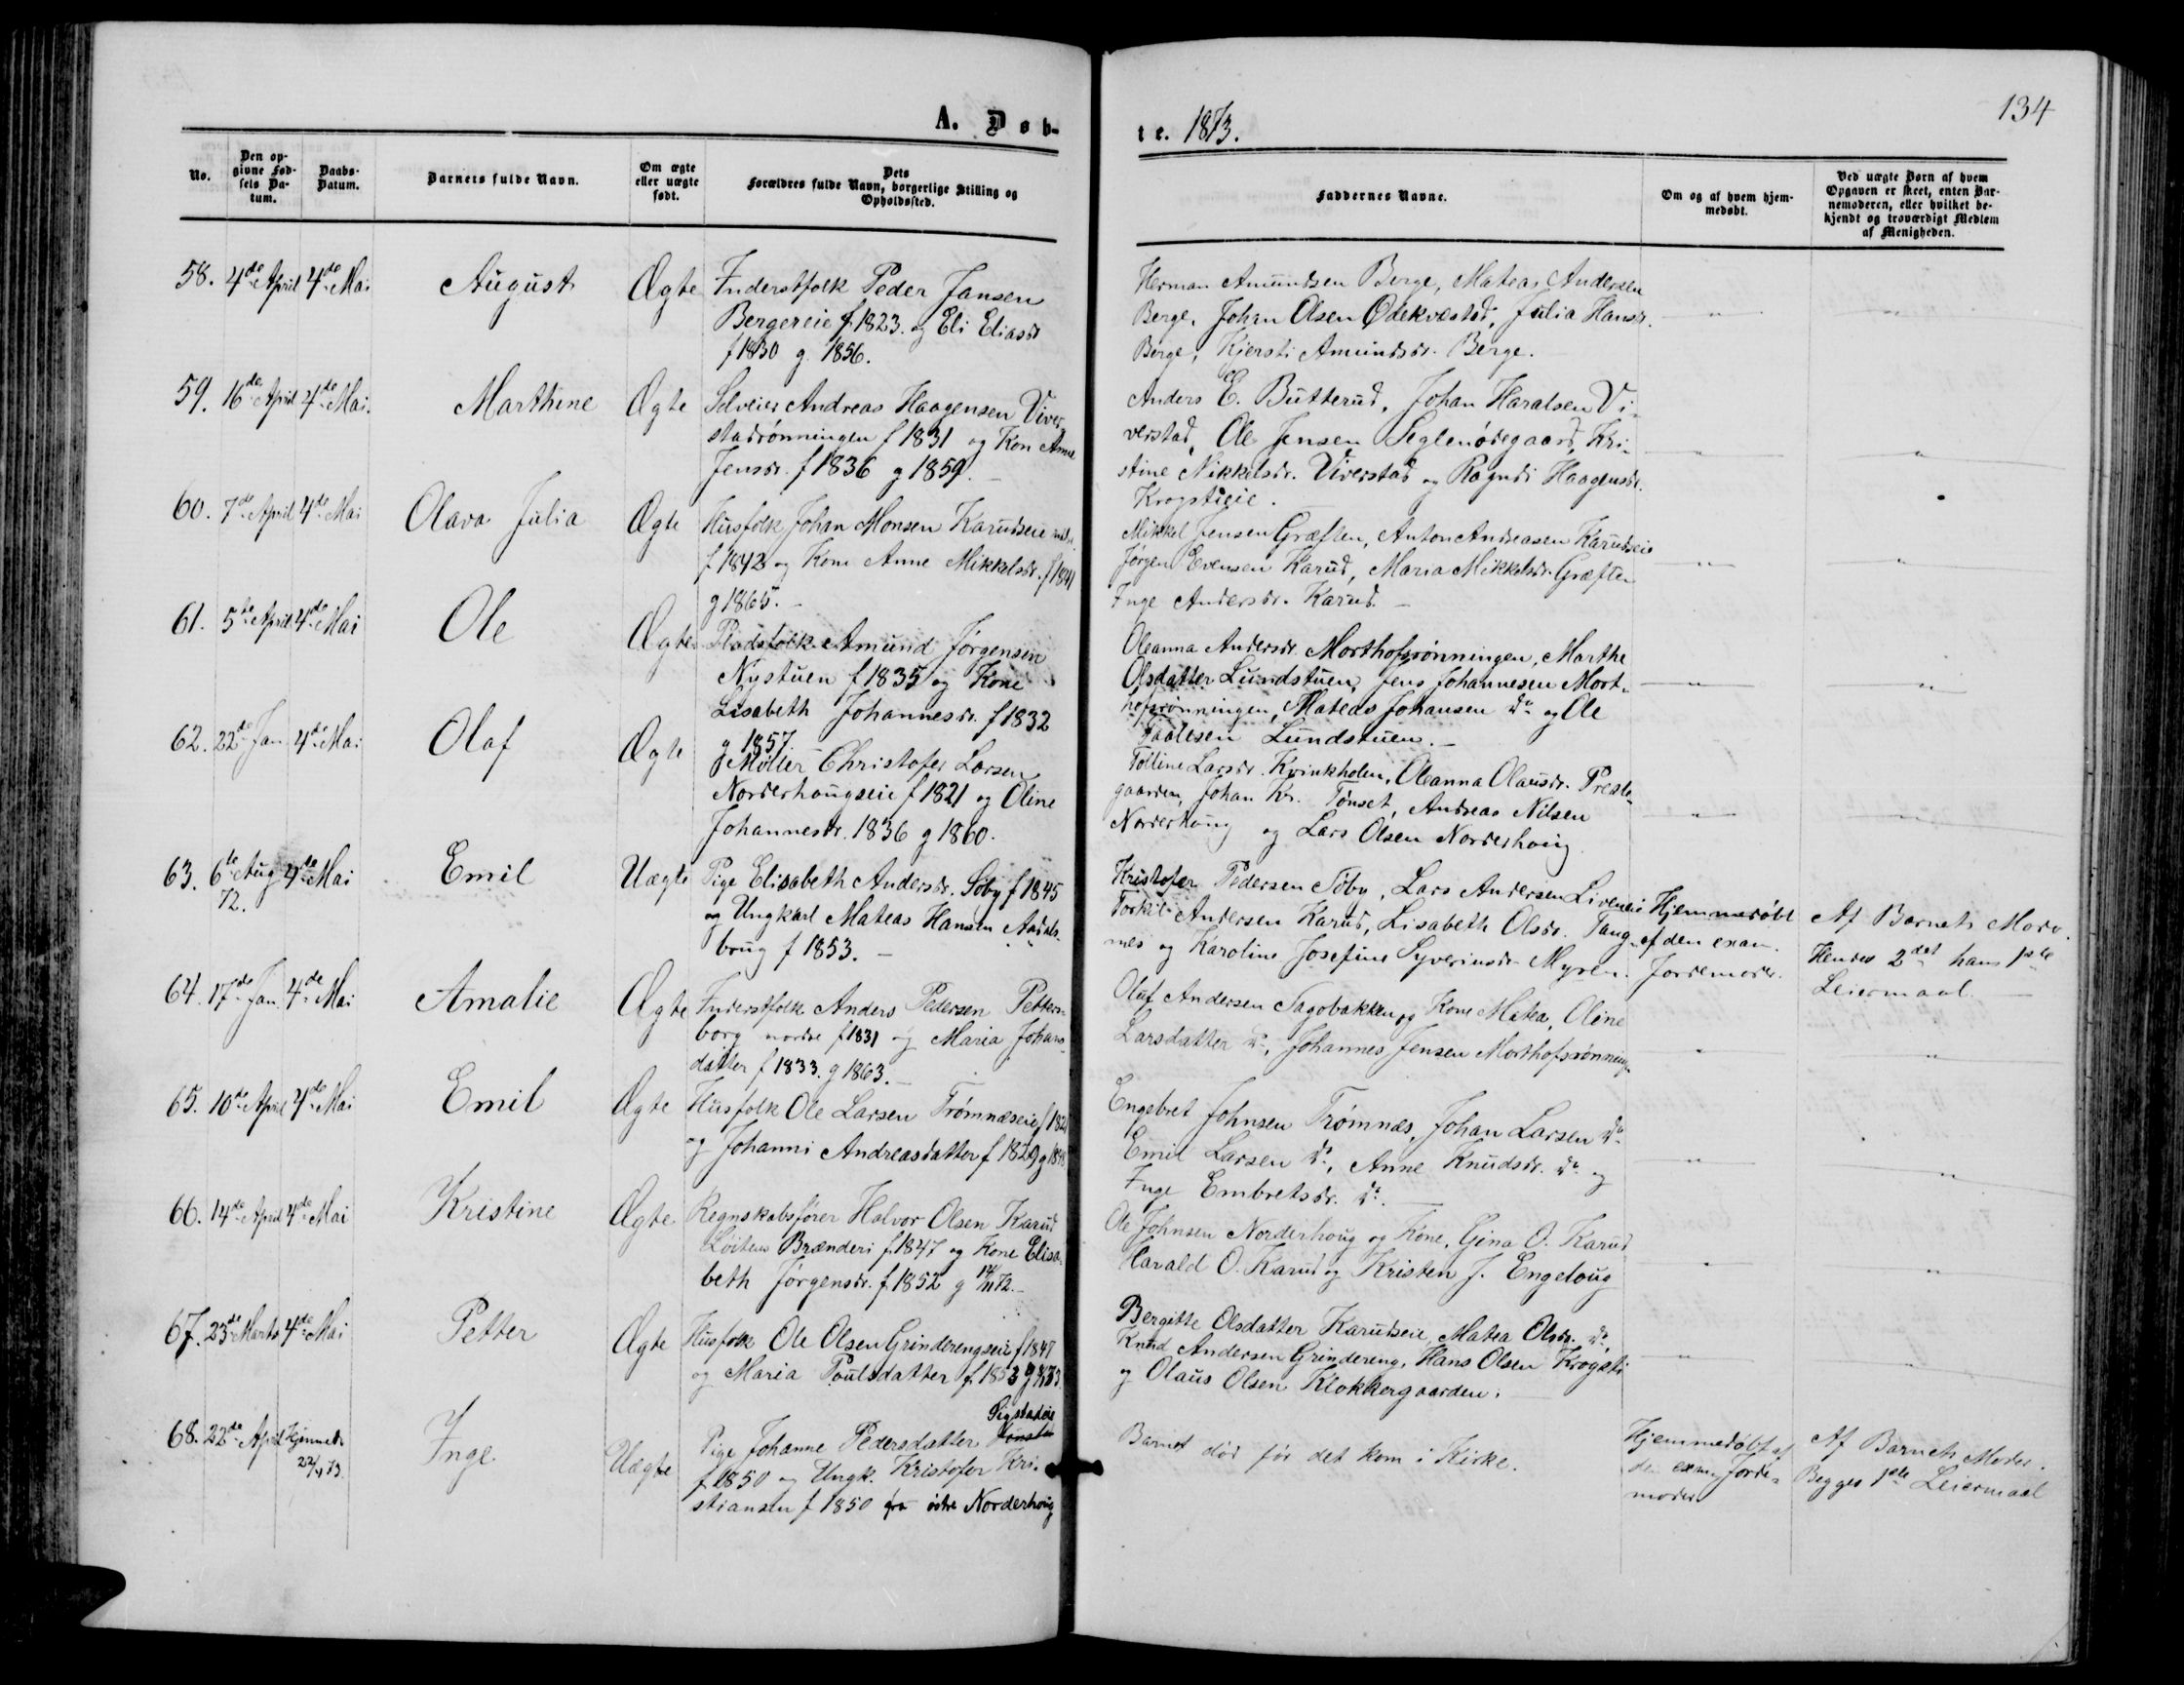 134
A. Døb-
te. 1873.
No.
Den op-
givne Fød-
sels Da-
tum.
Daabs-
Datum.
Barnets fulde Navn.
Om ægte
eller uægte
født.
Dets
Forældres fulde Navn, borgerlige Stilling og
Opholdssted.
Faddernes Navne.
Om og af hvem hjem-
medøbt.
Ved uægte Børn af hvem
Opgaven er skeet, enten Bar-
nemoderen, eller hvilket be-
kjendt og troværdigt Medlem
af Menigheden.
58. 4de April 4de Mai August Ægte Inderstfolk Peder Jansen
Bergereie f 1823. og Eli Eliasdr
f 1830 g. 1856.
Herman Amundsen Berge, Mateas Andersen
Berge, Johan Olsen Ødekvæstad, Julia Hansdr.
Berge, Kjersti Amundsdr. Berge.
59. 16de April 4de Mai. Marthine Ægte Selveier Andreas Haagensen Viver-
stadrønningen f 1831 og Kon Anne
Jensdr. f 1836 g 1859.
Anders E. Butterud, Johan Haralsen Vi-
verstad, Ole Jensen Seglenødegaard, Kri-
stine Nikkelsdr. Viverstad og Ragndi Haagensdr.
Krogstieie.
60. 7de April 4de Mai Olava Julia Ægte Husfolk Johan Monsen Karudseie
f 1842 og Kone Anne Mikkelsdr. f 1841
g 1865.
Mikkel Jensen Græften, Anton Andreasen Karudseie
Jørgen Evensen Karud, Maria Mikkelsdr. Græften
Inge Andersdr. Karud.
61. 5te April 4de Mai Ole Ægte Pladsfolk Amund Jørgensen
Nystuen f 1835 og Kone
Lisabeth Johannesdr. f 1832
g 1857.
Oleanna Andersdr. Morthofsrønningen, Marthe
Olsdatter Lundstuen, Jens Johannesen Mort-
hofsrønningen, Mateas Johansen do og Ole
Paalesen Lundstuen.
62. 22de Jan 4de Mai Olaf Ægte Møller Christofer Larsen
Norderhougseie f 1821 og Oline
Johannesdr. 1836 g 1860.
Tolline Larsdr. Kvinkholen, Oleanna Olausdr. Preste-
gaarden, Johan Kr. Tønset, Andreas Nilsen
Norderhoug og Lars Olsen Norderhoug
63. 6te Aug 4de Mai Emil Uægte Pige Elisabeth Andersdr. Soby f 1845
72.
og Ungkarl Mateas Hansen Aadals-
brug f 1853.
Kristofer Pedersen Soby, Lars Andersen Liveneie
Torkil Andersen Karud, Lisabeth Olsdr. Tang-
nes og Karoline Josefine Syverinsdr. Myren.
Hjemmedøbt
af den exam.
Jordemoder.
Af Barnets Moder.
Hendes 2det hans 1ste
Leiermaal.
64. 17de Jan. 4de Mai Amalie Ægte Inderstfolk Anders Pedersen Petters-
borg nordre f 1831 og Maria Johans-
datter f 1833. g 1863.
Oluf Andersen Sagobakken og Kone Matea, Oline
Larsdatter do, Johannes Jensen Morthofsrønning
65. 10de April 4de Mai Emil Ægte Husfolk Ole Larsen Trømnæseie f 182
og Johanni Andreasdatter f 1829
Engebret Johnsen Trømnæs, Johan Larsen do
Emil Larsen do, Anne Knudsdr. do og
Inge Embretsdr. do.
66. 14de April 4de Mai Kristine Ægte Regnskabsfører Halvor Olsen Karud
Løitens Brænderi f. 1847 og Kone Elisa-
beth Jørgensdr. f. 1852 g 14/11 72.
Ole Johnsen Norderhoug og Kone, Gina O. Karud
Harald O. Karud og Kristen J. Engeloug
67. 23de Marts 4de Mai Petter Ægte Husfolk Ole Olsen Grinderengseie f 1847
og Maria Poulsdatter f. 1853
Bergitte Olsdatter Karudseie, Matea Olsdr. do,
Knud Andersen Grindereng, Hans Olsen Krogsti
og Olaus Olsen Klokkergaarden.
68. 22de April Hjemmeds
22/4 73
Inge Uægte Pige Johanne Pedersdatter Sigstadeie
f. 1850 og Ungk. Kristofer Kri-
stiansen f 1850 fra østre Norderhoug
Barnet død før det kom i Kirke.
Hjemmedøbt af
den exam. Jorde-
moder
Af Barnets Moder.
Begges 1ste Leiermaal